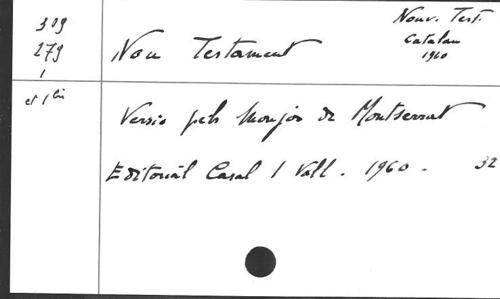 309
279
1
Nou Testament
Nouv. Test.
Catalan
1960
et 1 bis
Versio pels Monjos de Montserrat
Editorial Casal I Vall. 1960.
32